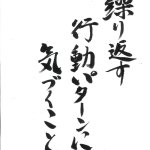 繰り返す
行動パターンに
気づくこと